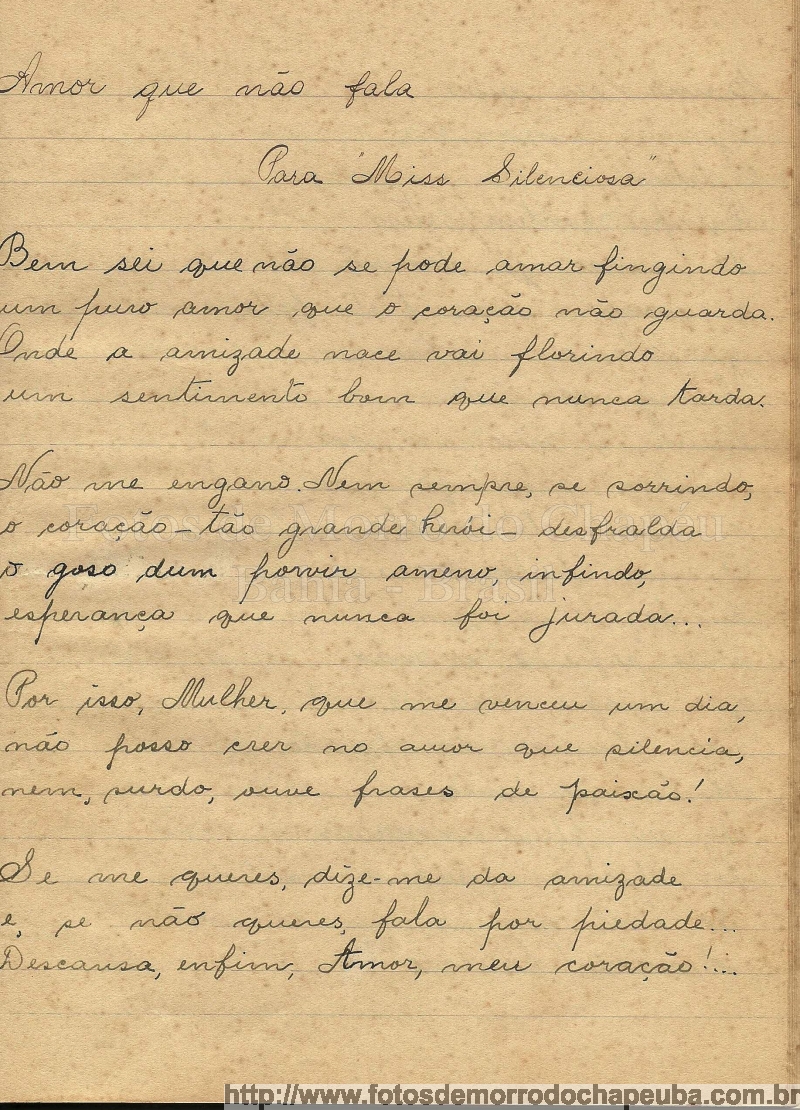 Amor que não fala
Para "Miss Silenciosa"
Bem sei que não se pode amar fingindo
um puro amor que o coração não guarda.
Onde a amizade nace vai florindo
um sentimento bom que nunca tarda.
Não me engano. Nem sempre, se sorrindo,
o coração - tão grande herói - desfralda
o goso dum porvir ameno, infindo,
esperança que nunca foi jurada...
Por isso, Mulher, que me venceu um dia,
não posso crer no amor que silencia,
nem, surdo, ouve frases de paixão!
Se me queres, dize-me da amizade
e, se não queres, fala por piedade...
Descansa, enfim, Amor, meu coração!...
Fotos de Morro do Chapéu
Bahia - Brasil
http://www.fotosdemorrodochapeuba.com.br